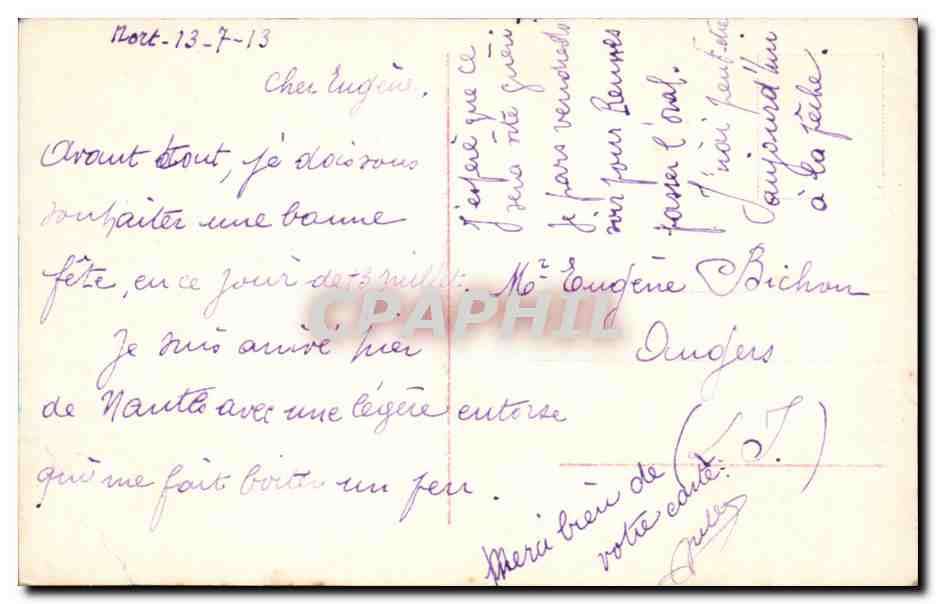 Niort-13-7-13
Cher Eugène,
Avant tout, je dois vous
souhaiter une bonne
fête, en ce jour de 13 Juillet.
Je suis arrivé hier
de Nantes avec une légère entorse
qui me fait boiter un peu.
J'espère que ce
sera vite guéri
Je pars vendredi
soir pour Rennes
passer l'oral.
J'irai peut-être
aujourd'hui
à la pêche.
Mr Eugène Bichon
Angers
Merci bien de
votre carte.
CPAPHIL